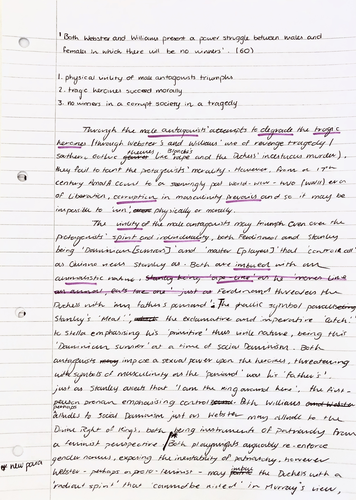 'Both Webster and Williams present a power struggle between males and
females in which there will be no winners'. (60)
1. physical virility of male antagonists triumphs
2. tragic heroines succeed morally
3. no winners in a corrupt society in a tragedy
Through the male antagonists' attempts to degrade the tragic
heroines (through Webster's and Williams' use of revenge tragedy /
southern gothic themes like Blanche's rape and the Duchess' incestuous murder),
they fail to taint the protagonists' morality. However, from a 17th
century Amalfi court to a seemingly post world-war-two era
of liberation, corruption in masculinity prevails and so it may be
impossible to win, physically or morally.
The virility of the male antagonists may triumph over the
protagonists' spirit and both Ferdinand and Stanley
being and 'master [players]' that
as both are imbued with an
animalistic nature.
just as Ferdinand threatens the
Duchess with 'my father's poniard'. The phallic symbol
Stanley's 'Meat' the exclamative and imperative 'Catch'
to Stella emphasising his 'primitive' thus virile nature, being this
'Darwinian survivor' at a time of social Darwinism. Both
antagonists impose a sexual power upon the heroines, threatening
with symbols of masculinity as the 'poniard' was his 'father's'.
just as Stanley that 'I am the king around here', the first-
person pronoun emphasising control. Both Williams
perhaps alludes to Social Darwinism just as Webster may allude to the
Divine Right of Kings, both being instruments of patriarchy from
a feminist perspective. Both playwrights arguably re-enforce
gender norms, exposing the inevitability of patriarchy, however
* new para Webster - perhaps a proto-feminist - may imbue the Duchess with a
'radiant spirit' that 'cannot be in Murray's view,